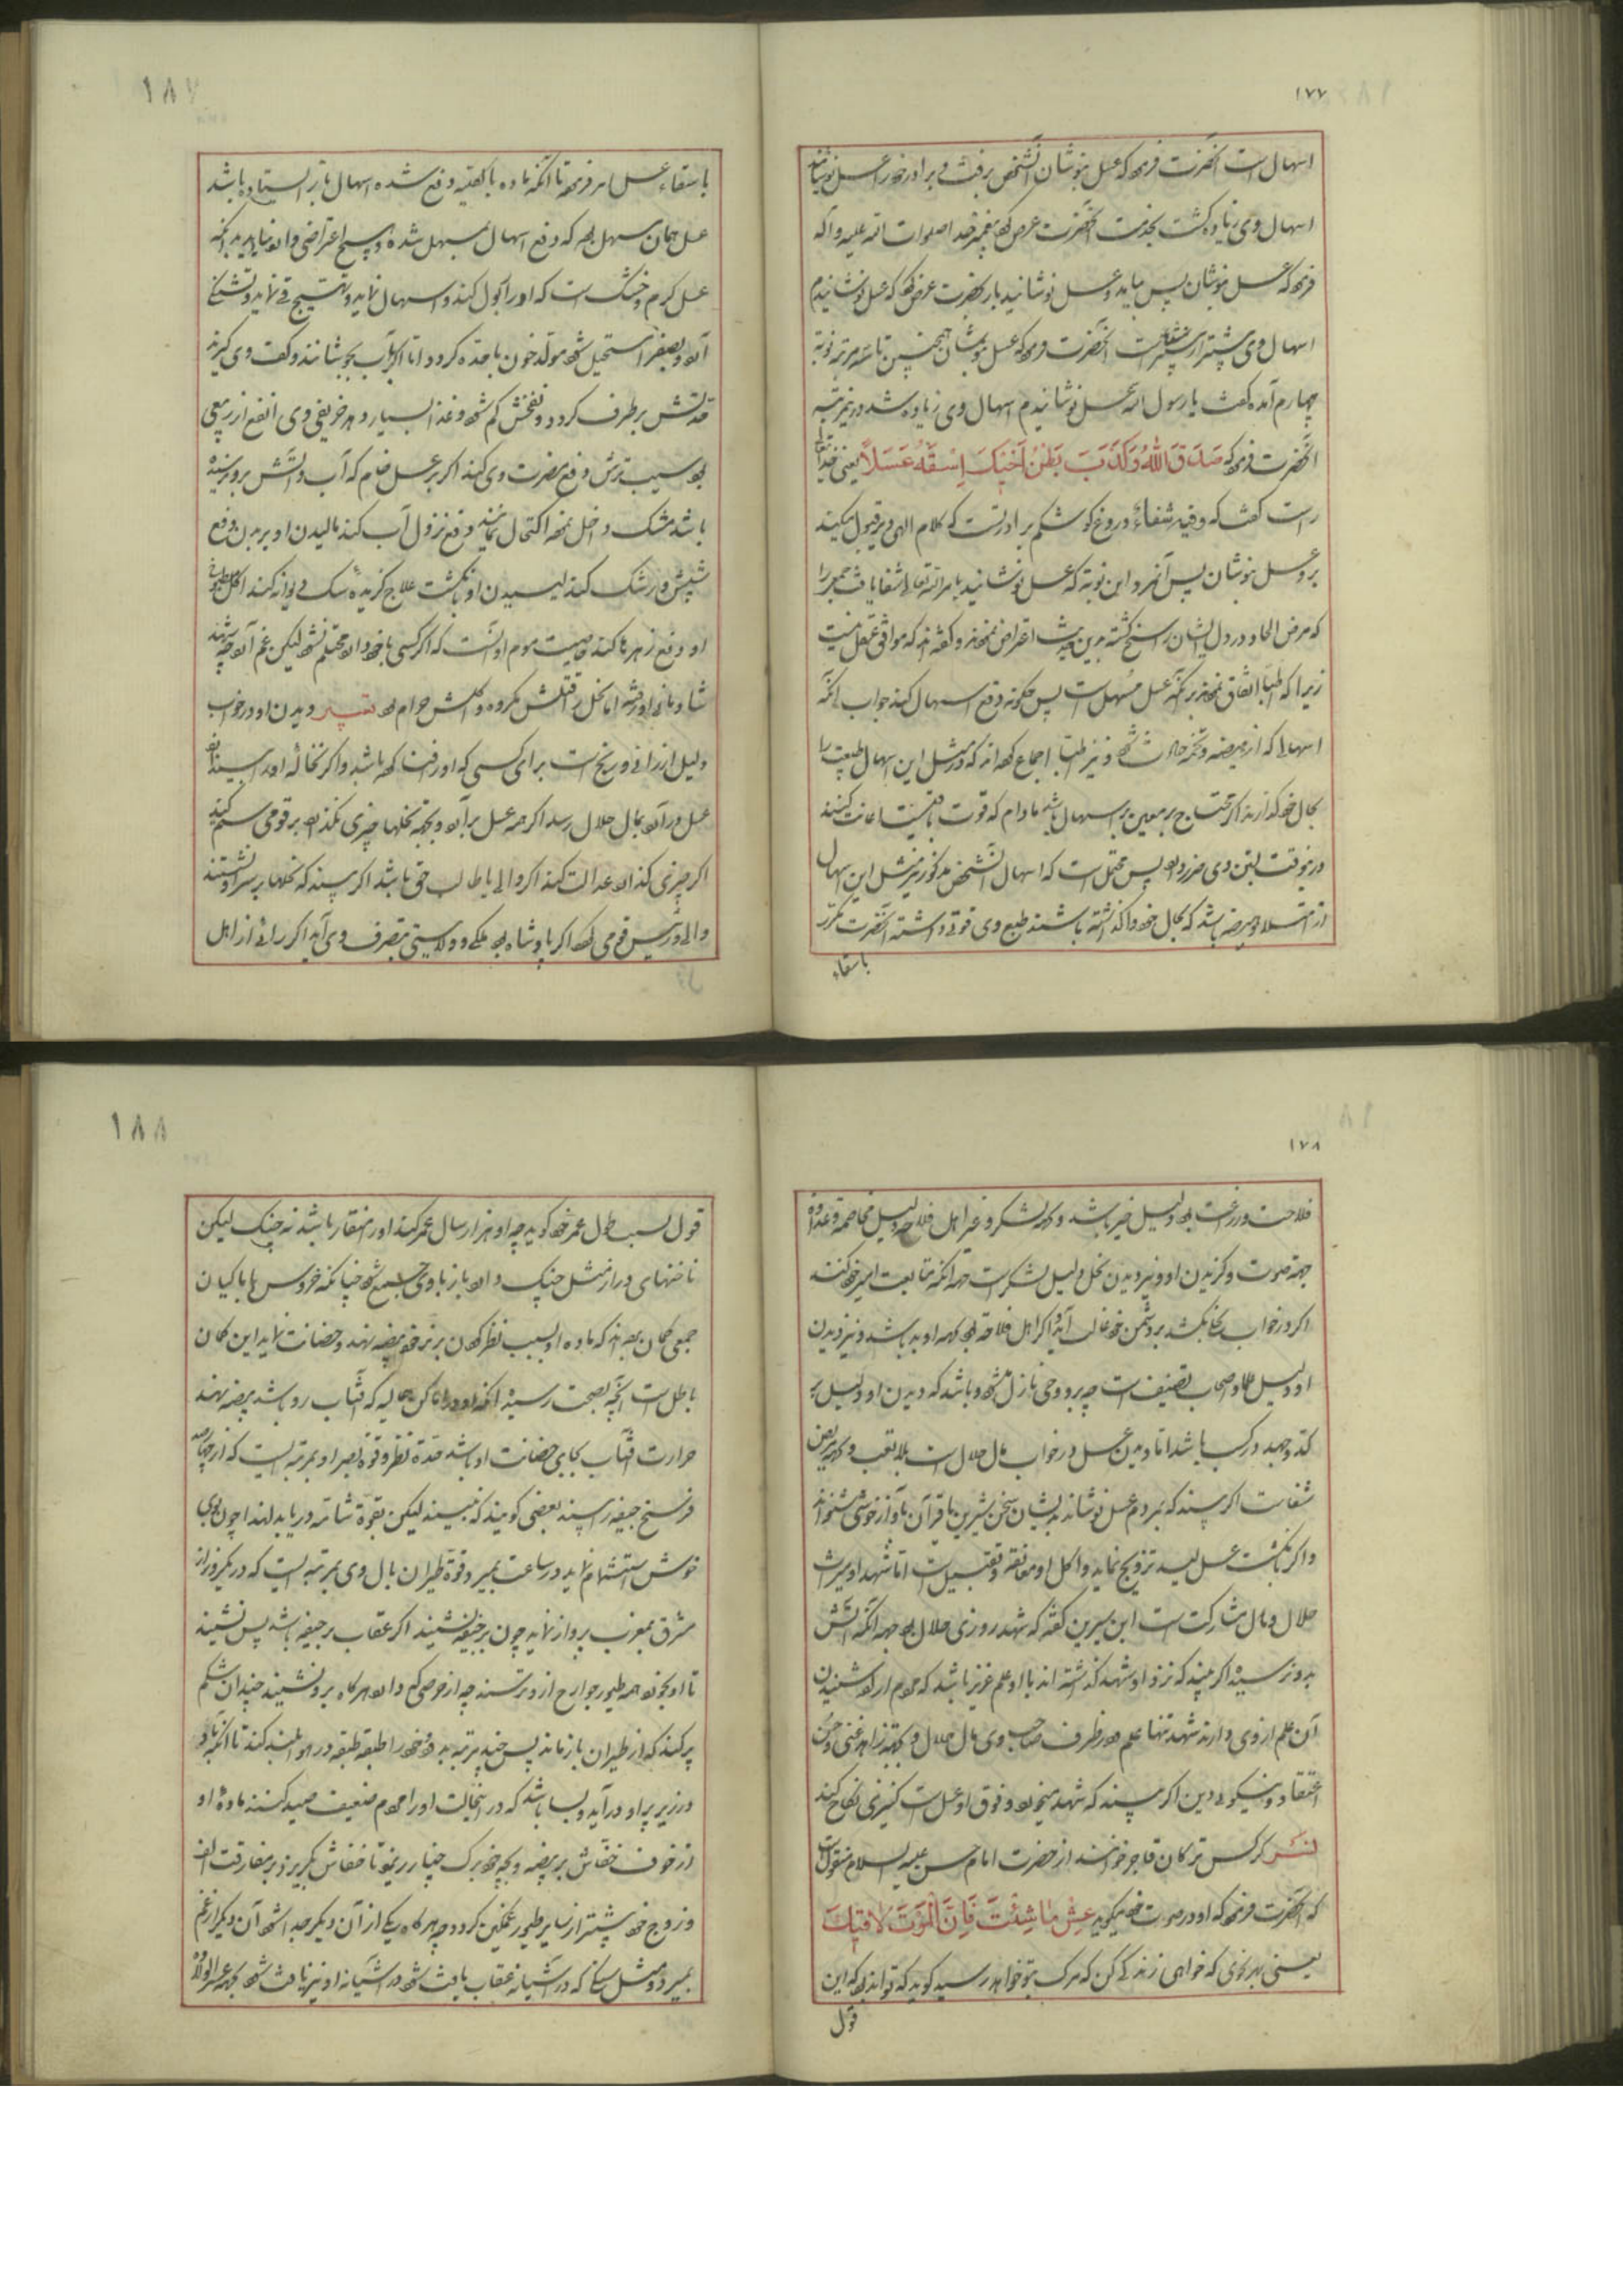 ۱۷۷
اسهال است آنحضرت فرموده که عسل بنوشان آنشخص برفت و برادر خود را عسل نوشانید
اسهال وی زیاده گشت بخدمت آنحضرت عرض پیغمبر خدا صلوات الله علیه و آله
فرموده که عسل بنوشان پس بیامد و عسل نوشانید باز بحضرت عرض که عسل نوشانیدم
اسهال وی بیشتر از پیشتر آنحضرت فرموده که عسل بنوشان همچنین تا سه مرتبه نوبة
چهارم آمده گفت یا رسول الله عسل نوشانیدم اسهال وی زیاده شد درین مرتبه
آنحضرت فرموده که صَدَقَ اللهُ وَكَذَبَ بَطْنُ اَخيكَ اِسْقِهِ عَسَلاً یعنی خدایتعالی
راست گفت که و فیه شفاء و دروغ گو شکم برادر تست که کلام الهی را قبول نمیکند
برو عسل بنوشان پس آنمرد این نوبه که عسل نوشانید بامر الله تعالی شفا یافت جمعی را
که مرض الحاد در دل ایشان راسخ گشته درین حدیث اعتراض نموده و گفته‌اند که موافق عقل نیست
زیرا که اطبا اتفاق نموده بر آنکه عسل مسهل است پس چگونه دفع اسهال کند جواب آنکه
اسهال که از هیضه و تخمه حادث شده و نیز اطبا اجماع که در مثل این اسهال طبیعت را
بحال خود گذارند اگر محتاج بر معین بر اسهال باشد مادام که قوت باقیست اعانت کنند
درینوقت بستن وی ضرر دارد پس محتمل است که اسهال آنشخص مذکور نیز مثل این اسهال
از امتلا و هیضه باشد که بحال خود وا گذاشته باشند طبع وی قوتی داشته آنحضرت مکرر
باسقاء
۱۸۷
باسقاء عسل امر فرموده تا آنکه ماده بالکلیه دفع شده اسهال باز ایستاده باشد
عسل همان مسهل بوده که دفع اسهال بمسهل شده و هیچ اعتراضی وارد نیاید بدانکه
عسل گرم و خشک است که او را اکول کند و اسهال نماید و تهییج قی نماید و تشنگی
آورد و بصفرا مستحیل شود مولد خون با حده گردد اما اگر بآب بجوشانند و کف وی گیرند
حدتش برطرف گردد و نفخش کم شود و غذا بسیار دهد خریفی وی انفع از ربیعی
بود سیب ترش دفع مضرت وی کند اگر بر عسل خام که آب و آتش برو نرسیده
باشد مشک داخل نموده اکتحال نمایند دفع نزول آب کند مالیدن او بر بدن دفع
شپش و رشک کند لیسیدن او بانگشت علاج گزیده سگ دیوانه کند اکل مطبوخ
او دفع زهرها کند خاصیت موم او آنست که اگر کسی با خود دارد محتلم نشود لیکن غم آورد چه
شادمانی او را اما نحل قتلش مکروه و اکلش حرام بود تعبیر دیدن او در خواب
دلیل ارزانی و رنج است برای کسی که او را باشد و اگر نحل را بیند که او
عسل بر آورد مال حلال رسد اگر همه عسل برآورد و بجهة نحلها چیزی نگذارد بر قومی ستم کند
اگر چیزی گذارد عدالت کند اگر والی یا طالب حقی باشد اگر بیند که نحلها بر سر او نشستند
والی و رئیس قومی بود اگر پادشاه بود ملکی و ولایتی بتصرف وی آید اگر رائی از اهل
۱۷۸
فلاحت و زراعت بود دلیل خیر باشد و بجهة لشکر و غیر اهل فلاحت دلیل مخاصمه و عداوت
بجهة صوت و گزیدن او و نیز دیدن نحل دلیل لشکر است جهة آنکه متابعت امیر خود کنند
اگر در خواب نحل بکشد بر دشمن خود غالب آید و اگر اهل فلاحه بود بجهة او بد باشد و نیز دیدن
او دلیل علما و اصحاب تصنیف است چه برو وحی نازل شده و باشد که دیدن او دلیل بر
کد و جهد در کسب باشد اما دیدن عسل در خواب مال حلال است بلا تعب و بجهة مریض
شفاست اگر بیند که بمردم عسل نوشاند بایشان سخن شیرین یا قرآن بآواز خوش شنواند
و اگر بانگشت عسل لیسد تزویج نماید و اکل او معانقه و تقبیل است اما شهد او میراث
حلال و مال مشارکت است ابن سیرین گفته که شهد روزی حلال بود جهة آنکه آتش
بدو نرسیده اگر بیند که نزد او شهد گذاشته اند با او علم عزیز باشد که مردم اراده شنیدن
آن علم از وی دارند شهد تنها علم بود و در ظرف صاحب وی مال حلال و بجهة زاهد غنی و حسن
اعتقاد و نیکوئی دین اگر بیند که شهد میخورد و فوق او عسل است کنیزی نکاح کند
نَسْر کرکس ترکان قاجر خوانند از حضرت امام حسن علیه السلام منقول است
که آنحضرت فرموده که او در صوت خود میگوید عِشْ مٰا شِئْتَ فَاِنَّ الْمَوْتَ لاقیكَ
یعنی بهر نحوی که خواهی زندگی کن که مرگ بتو خواهد رسید گوید که تواند بود که این
قول
۱۸۸
قول بسبب طول عمر خود گوید چه او هزار سال عمر کند او را منقار باشد نه چنگ لیکن
ناخنهای دراز مثل چنگ دارد باز باوی جمع شود چنانکه خروس با ماکیان
جمعی گمان برده‌اند که ماده او بسبب نظر کردن بر نر خود بیضه نهد و حضانت نماید این گمان
باطل است آنچه بصحت رسیده آنکه او در اماکن عالیه که آفتاب رو باشد بیضه نهند
حرارت آفتاب بجای حضانت او باشد حدة نظر و قوة بصر او بمرتبه ایست که از چهارصد
فرسخ جیفه را بیند بعضی گویند که نبیند لیکن بقوة شامه دریابد لهذا چون بوی
خوش استشمام نماید در ساعت بمیرد و قوة طیران بال وی بمرتبه ایست که در یکروز از
مشرق بمغرب پرواز نماید چون بر جیفه نشیند اگر عقاب بر جیفه باشد پس ننشیند
تا او بخورد و همه طیور جوارح از او ترسند چه از حرصی که دارد هرگاه برو نشیند چندان شکم
پر کند که از طیران باز ماند پس چند مرتبه بدود خود را طبقه طبقه در هوا بلند کند تا آنکه باد
در زیر پر او درآید و بسا باشد که در آنحالت او را مردم ضعیف صید کنند ماده او
از خوف خفاش بر بیضه و بچه خود برگ چنار ریزد تا خفاش بگریزد بر مفارقت الف
و زوج خود بیشتر از سایر طیور غمگین گردد چه هرگاه یکی از آن دیگر جدا شود آن دیگر از غم
بمیرد و مثل سنگی که در آشیانه عقاب یافت شود در آشیانه او نیز یافت شود بجهة عسر الولادة